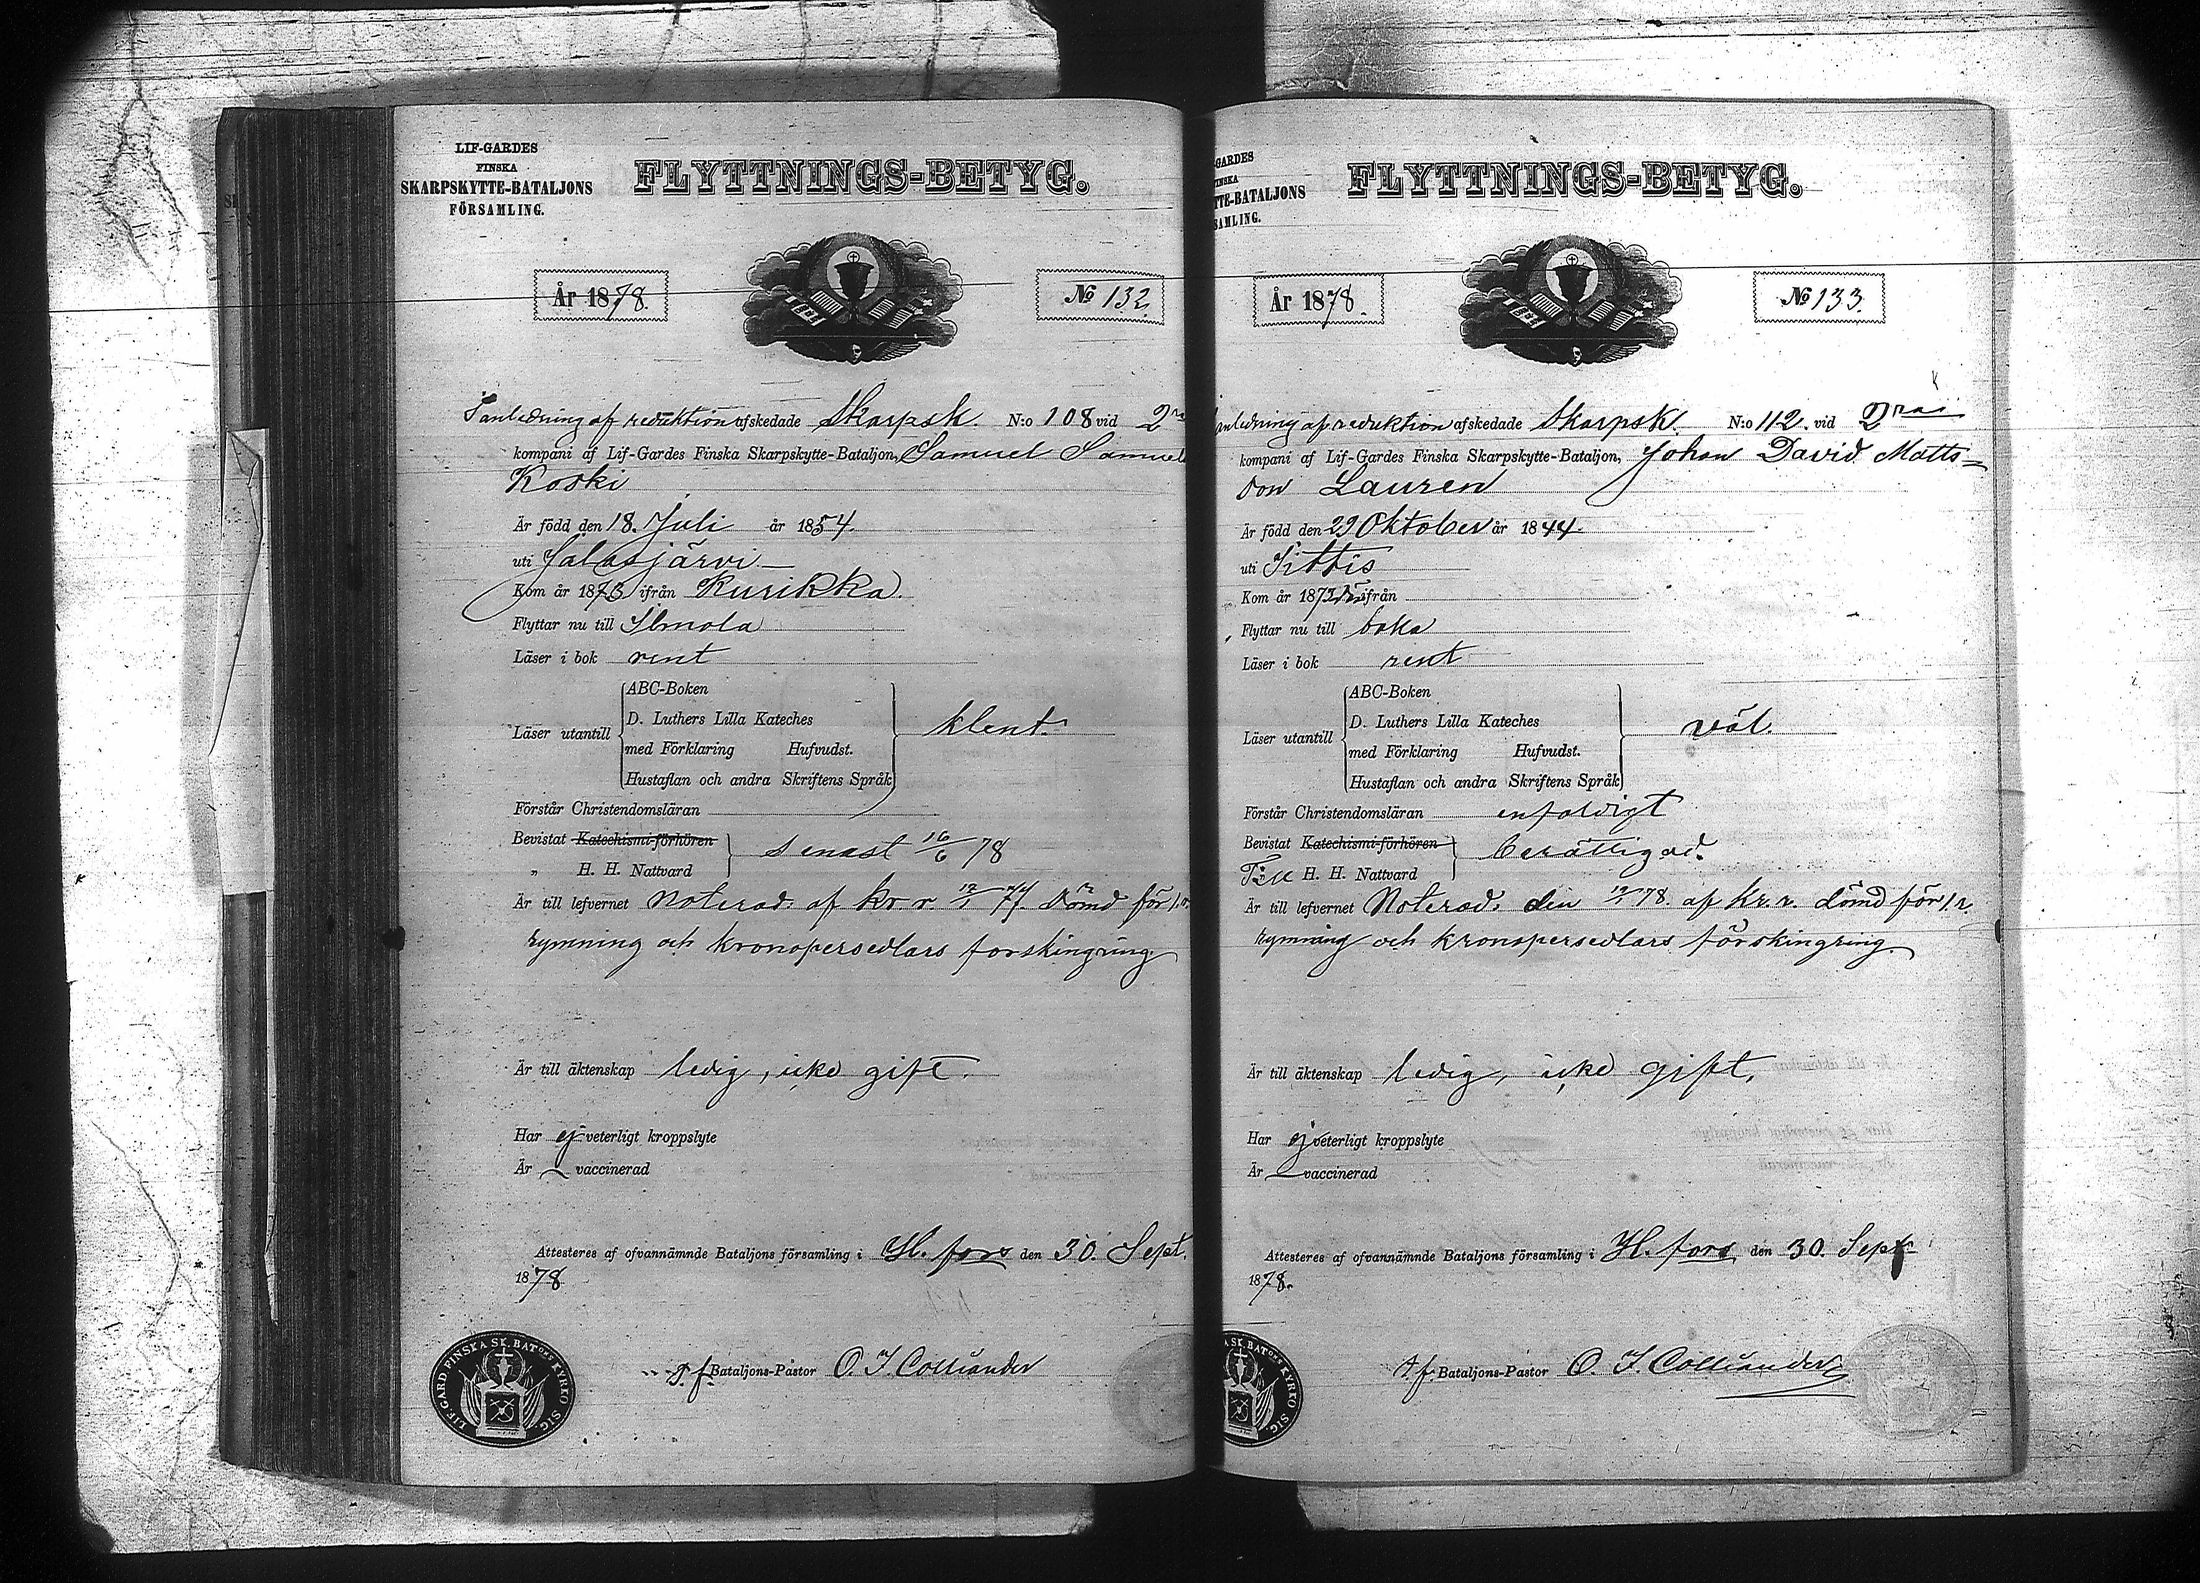 LIF-GARDES
FINSKA
SKARPSKYTTE-BATALJONS
FÖRSAMLING.
FLYTTNINGS-BETYG.
År 1878.
№ 132.
I anledning af reduktion afskedade Skarpsk. N:o 108 vid 2
kompani af Lif-Gardes Finska Skarpskytte-Bataljon, Samuel Samuel
Koski
Är född den 18. Juli år 1854.
uti Jalasjärvi
Kom år 1873 ifrån Kurikka.
Flyttar nu till Ilmola
Läser i bok rent
Läser utantill
ABC-Boken
D. Luthers Lilla Kateches
med Förklaring Hufvudst.
Hustaflan och andra Skriftens Språk
klent.
Förstår Christendomsläran
Bevistat Katechismi-förhören
„ H. H. Nattvard
senast 16/6 78
Är till lefvernet Noterad. af kr. r. 77. dömd för 1.
rymning och kronopersedlars forskingring
Är till äktenskap ledig, icke gift.
Har ej veterligt kroppslyte
Är vaccinerad
Attesteres af ofvannämnde Bataljons församling i H.fors den 30. Sept.
1878
t. f. Bataljons-Pastor O. I. Colliander
LIF. GARD. FINSKA SK. BAT:ONS KYRKO SIG.
GARDES
INSKA
TTE-BATALJONS
SAMLING.
FLYTTNINGS-BETYG.
År 1878.
№ 133.
anledning af reduktion afskedade Skarpsk. N:o 112. vid 2ra
kompani af Lif-Gardes Finska Skarpskytte-Bataljon, Johan David Matts=
son Lauren
Är född den 29 Oktober år 1844.
uti Sittis
Kom år 187 ifrån
Flyttar nu till
Läser i bok rent
Läser utantill
ABC-Boken
D. Luthers Lilla Kateches
med Förklaring Hufvudst.
Hustaflan och andra Skriftens Språk
väl.
Förstår Christendomsläran enfaldigt
Bevistat Katechismi-förhören
Till H. H. Nattvard
berättigad.
Är till lefvernet Noterad. den 78. af Kr. r. dömd för 1. r.
rymning och kronopersedlars förskingring
Är till äktenskap ledig, icke gift.
Har ej veterligt kroppslyte
Är vaccinerad
Attesteres af ofvannämnde Bataljons församling i H.fors den 30. Sept
1878.
t. f. Bataljons-Pastor O. I. Colliander
A SK. BAT:ONS KYRKO SIG.